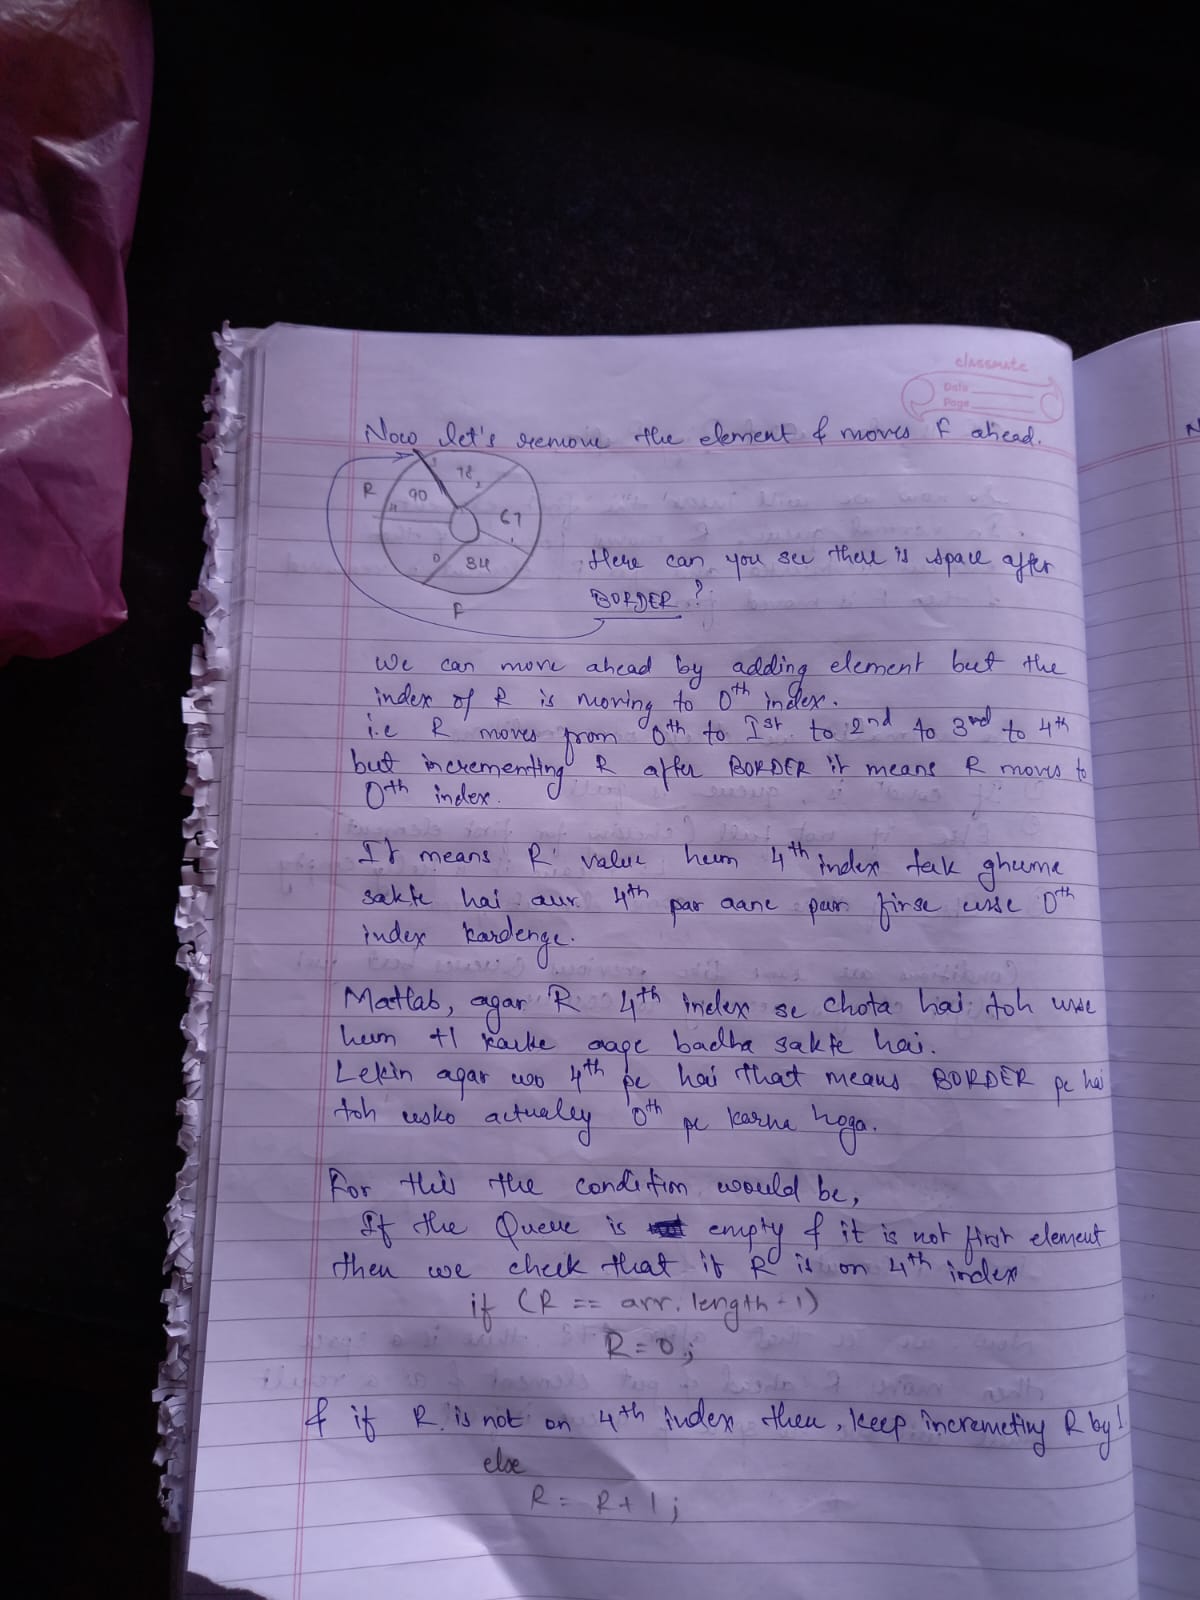 classmate
Date
Page
Now let's remove the element & moves F ahead.
R
90
4
78
3
67
0
34
F
Here can you see there is space after
BORDER ?
We can move ahead by adding element but the
index of R is moving to 0th index.
i.e R moves from 0th to Ist to 2nd to 3rd to 4th
but incrementing R after BORDER it means R moves to
0th index.
It means R value hum 4th index tak ghuma
sakte hai aur 4th par aane par firse usse 0th
index kardenge.
Matlab, agar R 4th index se chota hai toh usse
hum +1 karke aage badha sakte hai.
Lekin agar wo 4th pe hai that means BORDER pe hai
toh usko actualey 0th pe karna hoga.
For this the condition would be,
If the Queue is empty & it is not first element
then we check that if R is on 4th index
if (R == arr.length-1)
R=0;
& if R is not on 4th index then, keep incremeting R by 1
else
R = R+1;